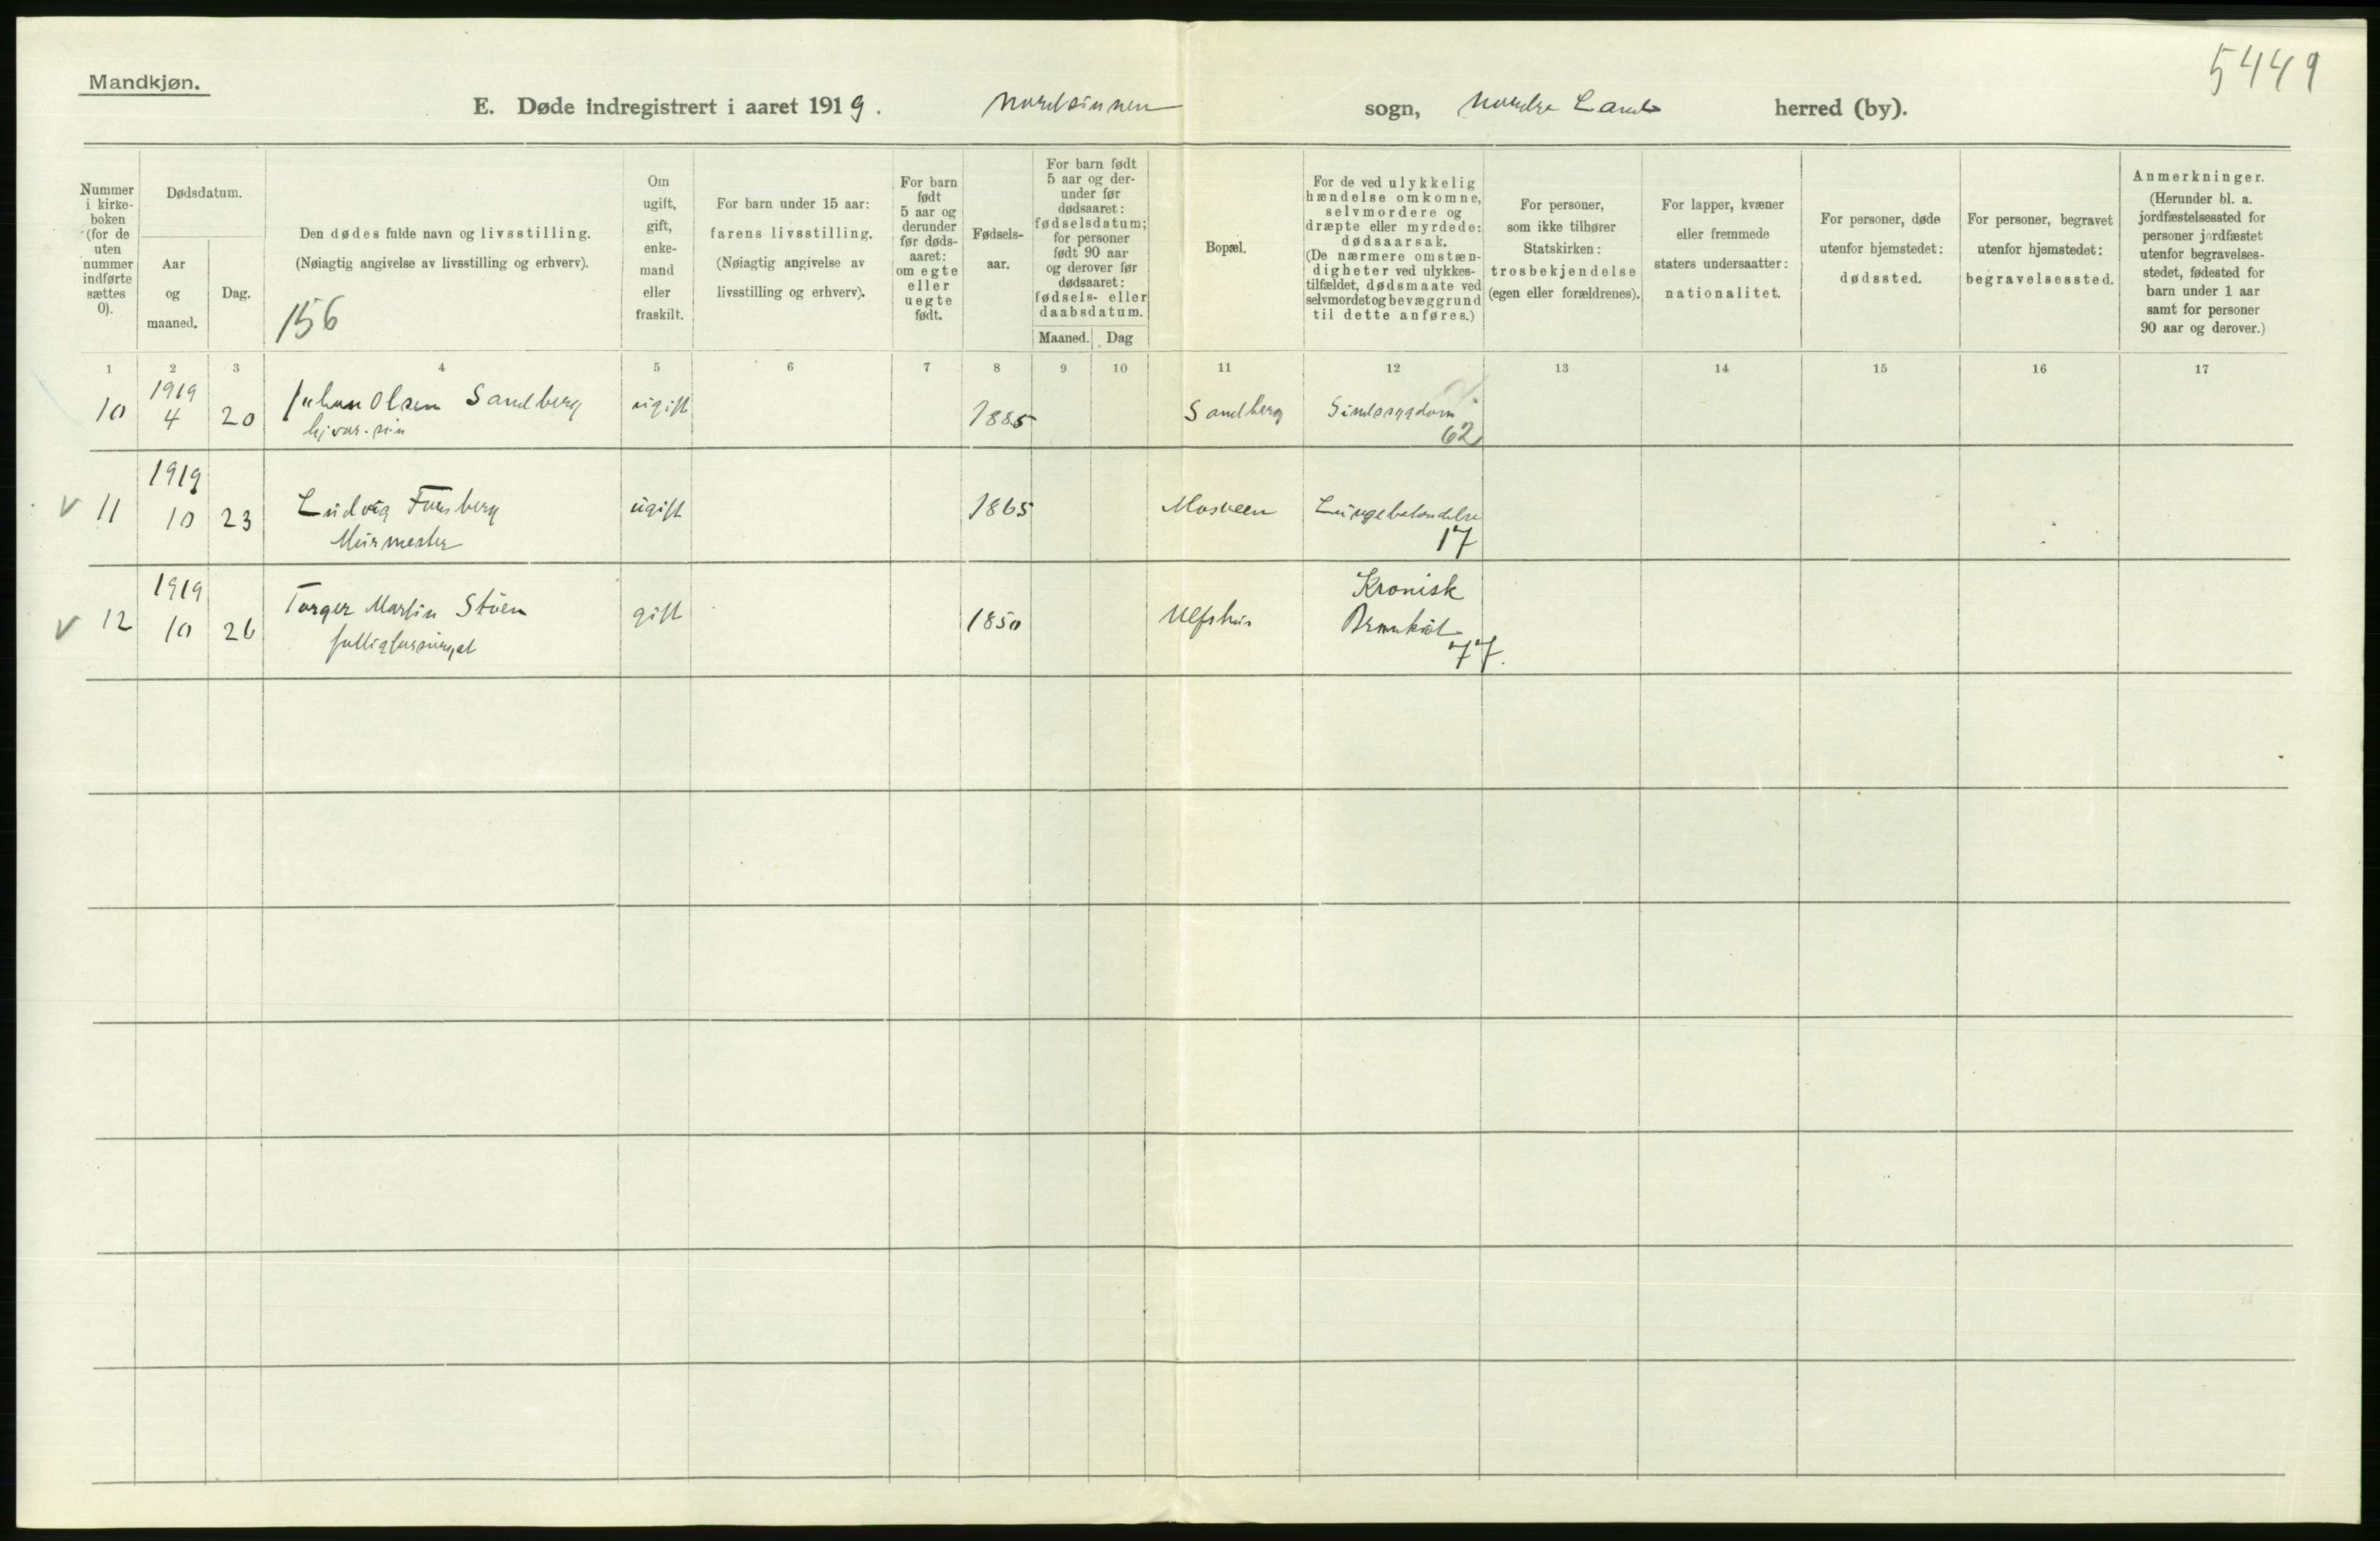 5449
Mandkjøn.
E. Døde indregistrert i aaret 1919. Nordsinnen sogn, Nordre Land herred (by).
Nummer i kirke-boken (for de uten nummer indførte sættes 0).
Dødsdatum.
Aar og maaned.
Dag.
Den dødes fulde navn og livsstilling.
(Nøiagtig angivelse av livsstilling og erhverv).
156
Om ugift, gift, enke-mand eller fraskilt.
For barn under 15 aar: farens livsstilling.
(Nøiagtig angivelse av livsstilling og erhverv).
For barn født 5 aar og derunder før døds-aaret: om egte eller uegte født.
Fødsels-aar.
For barn født 5 aar og der-under før dødsaaret: fødselsdatum; for personer født 90 aar og derover før dødsaaret: fødsels- eller daabsdatum.
Maaned. Dag
Bopæl.
For de ved ulykkelig hændelse omkomne, selvmordere og dræpte eller myrdede: dødsaarsak.
(De nærmere omstæn-digheter ved ulykkes-tilfældet, dødsmaate ved selvmordet og bevæggrund til dette anføres.)
For personer, som ikke tilhører Statskirken: trosbekjendelse (egen eller forældrenes).
For lapper, kvæner eller fremmede staters undersaatter: nationalitet.
For personer, døde utenfor hjemstedet: dødssted.
For personer, begravet utenfor hjemstedet: begravelsessted.
Anmerkninger.
(Herunder bl. a. jordfæstelsessted for personer jordfæstet utenfor begravelses-stedet, fødested for barn under 1 aar samt for personer 90 aar og derover.)
1 2 3 4 5 6 7 8 9 10 11 12 13 14 15 16 17
1919
10 4 20 Johan Olsen Sandberg ugift 1885 Sandberg Sindssygdom
62
1919
V 11 10 23 Ludvig Fursberg ugift 1865 Mosveen Lungebetændelse
Murmester 17
1919 Kronisk
V 12 10 26 Torger Martin Stuen gift 1850 Ulfshus Bronkit
fattigforsørget 77.